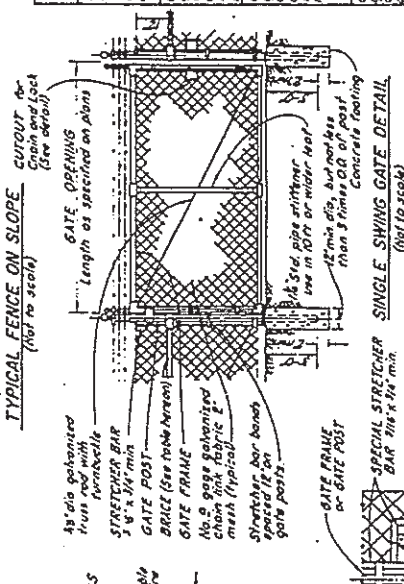 TYPICAL FENCE ON SLOPE
(Not to scale)
CUTOUT for
Chain and Lock
(See detail)
GATE OPENING
Length as specified on plans
3/8" dia galvanized
truss rod with
turnbuckle
STRETCHER BAR
3/4" min.
GATE POST
BRACE (See table hereon)
GATE FRAME
No. 9 gage galvanized
chain link fabric 2"
mesh (typical)
Stretcher bar bands
spaced 12" on
gate posts.
Std. pipe stiffener
use in 10ft or wider leaf
12" min. dia, but not less
than 3 times O.D. of post
Concrete footing
SINGLE SWING GATE DETAIL
(Not to scale)
GATE FRAME
or GATE POST
SPECIAL STRETCHER
BAR 3/16" x 3/4" min.